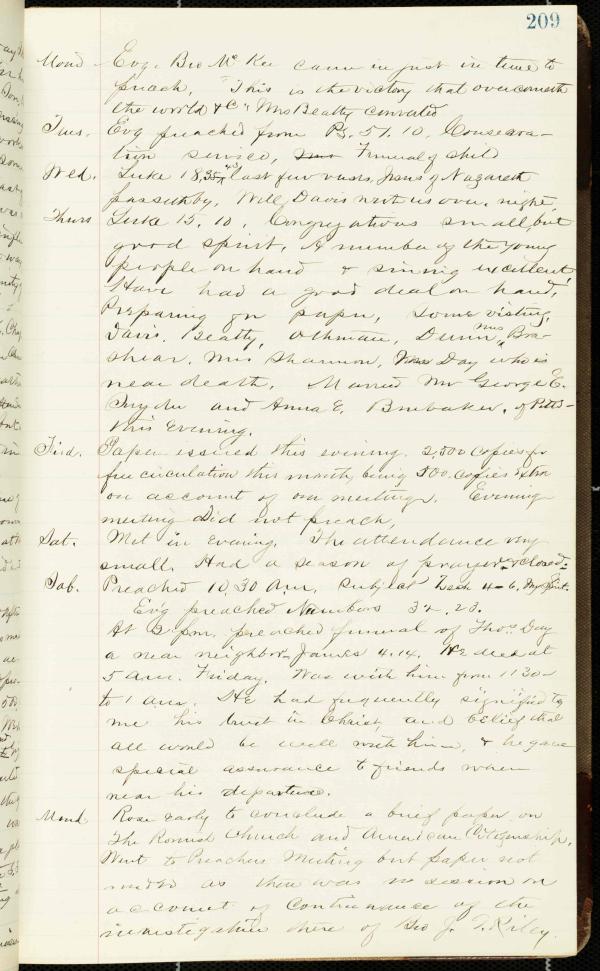 209
Mond Evg. Bro McKee came in just in time to
preach, "This is the victory that overcometh
the world &c" Mrs Beatty converted
Tues. Evg preached from Ps. 51. 10. Consecra-
tion service, Funeral of child
Wed. Luke 18, last few verses, Jesus of Nazareth
passeth by. Will Davis with us over night.
Thurs Luke 15. 10. Congregations small, but
good spirit. A number of the young
people on hand & singing excellent!
Have had a good deal on hand,
Preparing for paper, some visiting,
Davis, Beatty, Othman, Dunn, Mrs Bra-
shear, Mrs Shannon, Day who is
near death. Married Mr George E.
Snyder and Anna E. Brubaker, of Pitts-
this Evening.
Frid. Paper issued this evening. 2,500 copies for
free circulation this month, being 500 copies extra
on account of our meetings. Evening
meeting did not preach,
Sat. Met in Evening. The attendance very
small. Had a season of prayer & closed.
Sab. Preached 10,30 A.M. Subject Zech 4-6, My Spirit.
Ev'g preached Numbers 32. 23.
At 2 p.m. preached funeral of Thos. Day
a near neighbor James 4.14. He died at
5 A.M. Friday. Was with him from 11 30
to 1 A.M. He had frequently signified to
me his trust in Christ, and belief that
all would be well with him, & he gave
special assurance to friends when
near his departure.
Mond. Rose early to conclude a brief paper on
The Romish Church and American Citizenship.
Went to Preachers Meeting but paper not
needed as there was no session on
account of continuance of the
investigation there of Bro J. T. Riley.